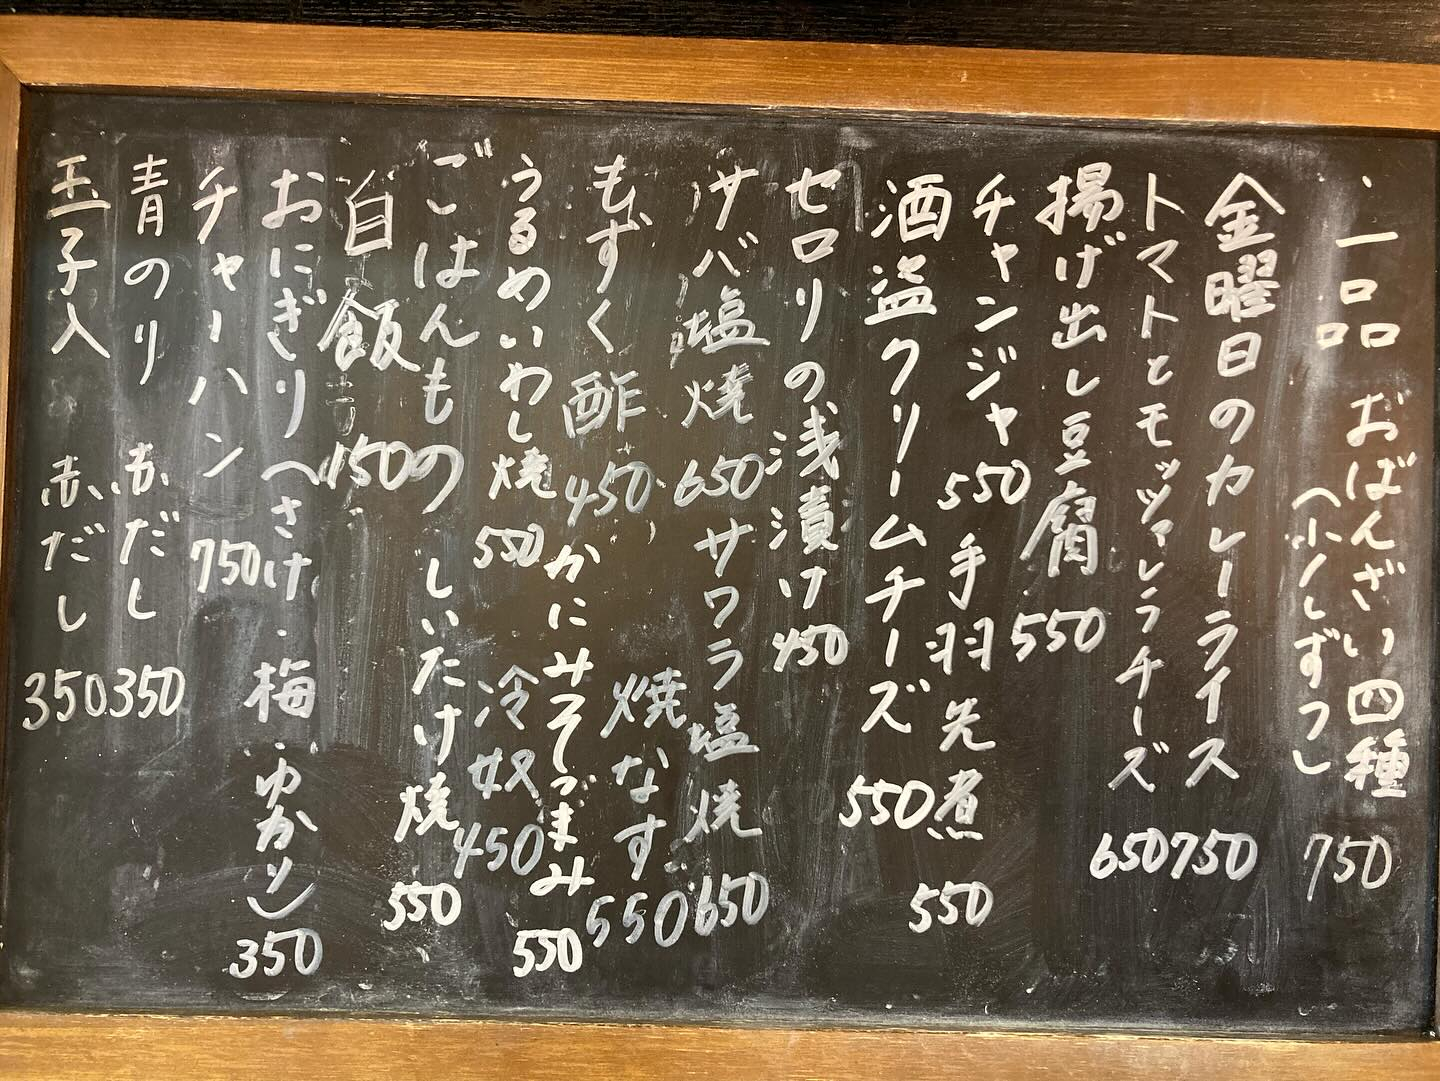 一品 おばんざい四種 750
(少しずつ)
金曜日のカレーライス 750
トマトとモッツァレラチーズ 650
揚げ出し豆腐 550
チャンジャ 550 手羽先煮 550
酒盗クリームチーズ 550
セロリの浅漬け 450
サバ塩焼 650 サワラ塩焼 650
焼なす 550
もずく酢 450 かにみそつまみ 550
うるめいわし焼 550 冷奴 450
ごはんもの しいたけ焼 550
白飯 150
おにぎり(さけ・梅・ゆかり) 350
チャーハン 750
青のり 赤だし 350
玉子入 赤だし 350